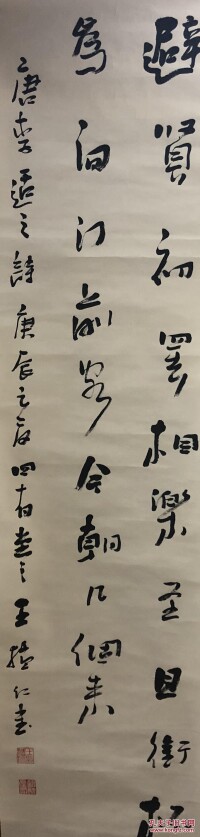 避賢初罷相樂聖且銜杯
為問門前客今朝幾個來
唐李適之詩 庚辰之夏 王 仁書